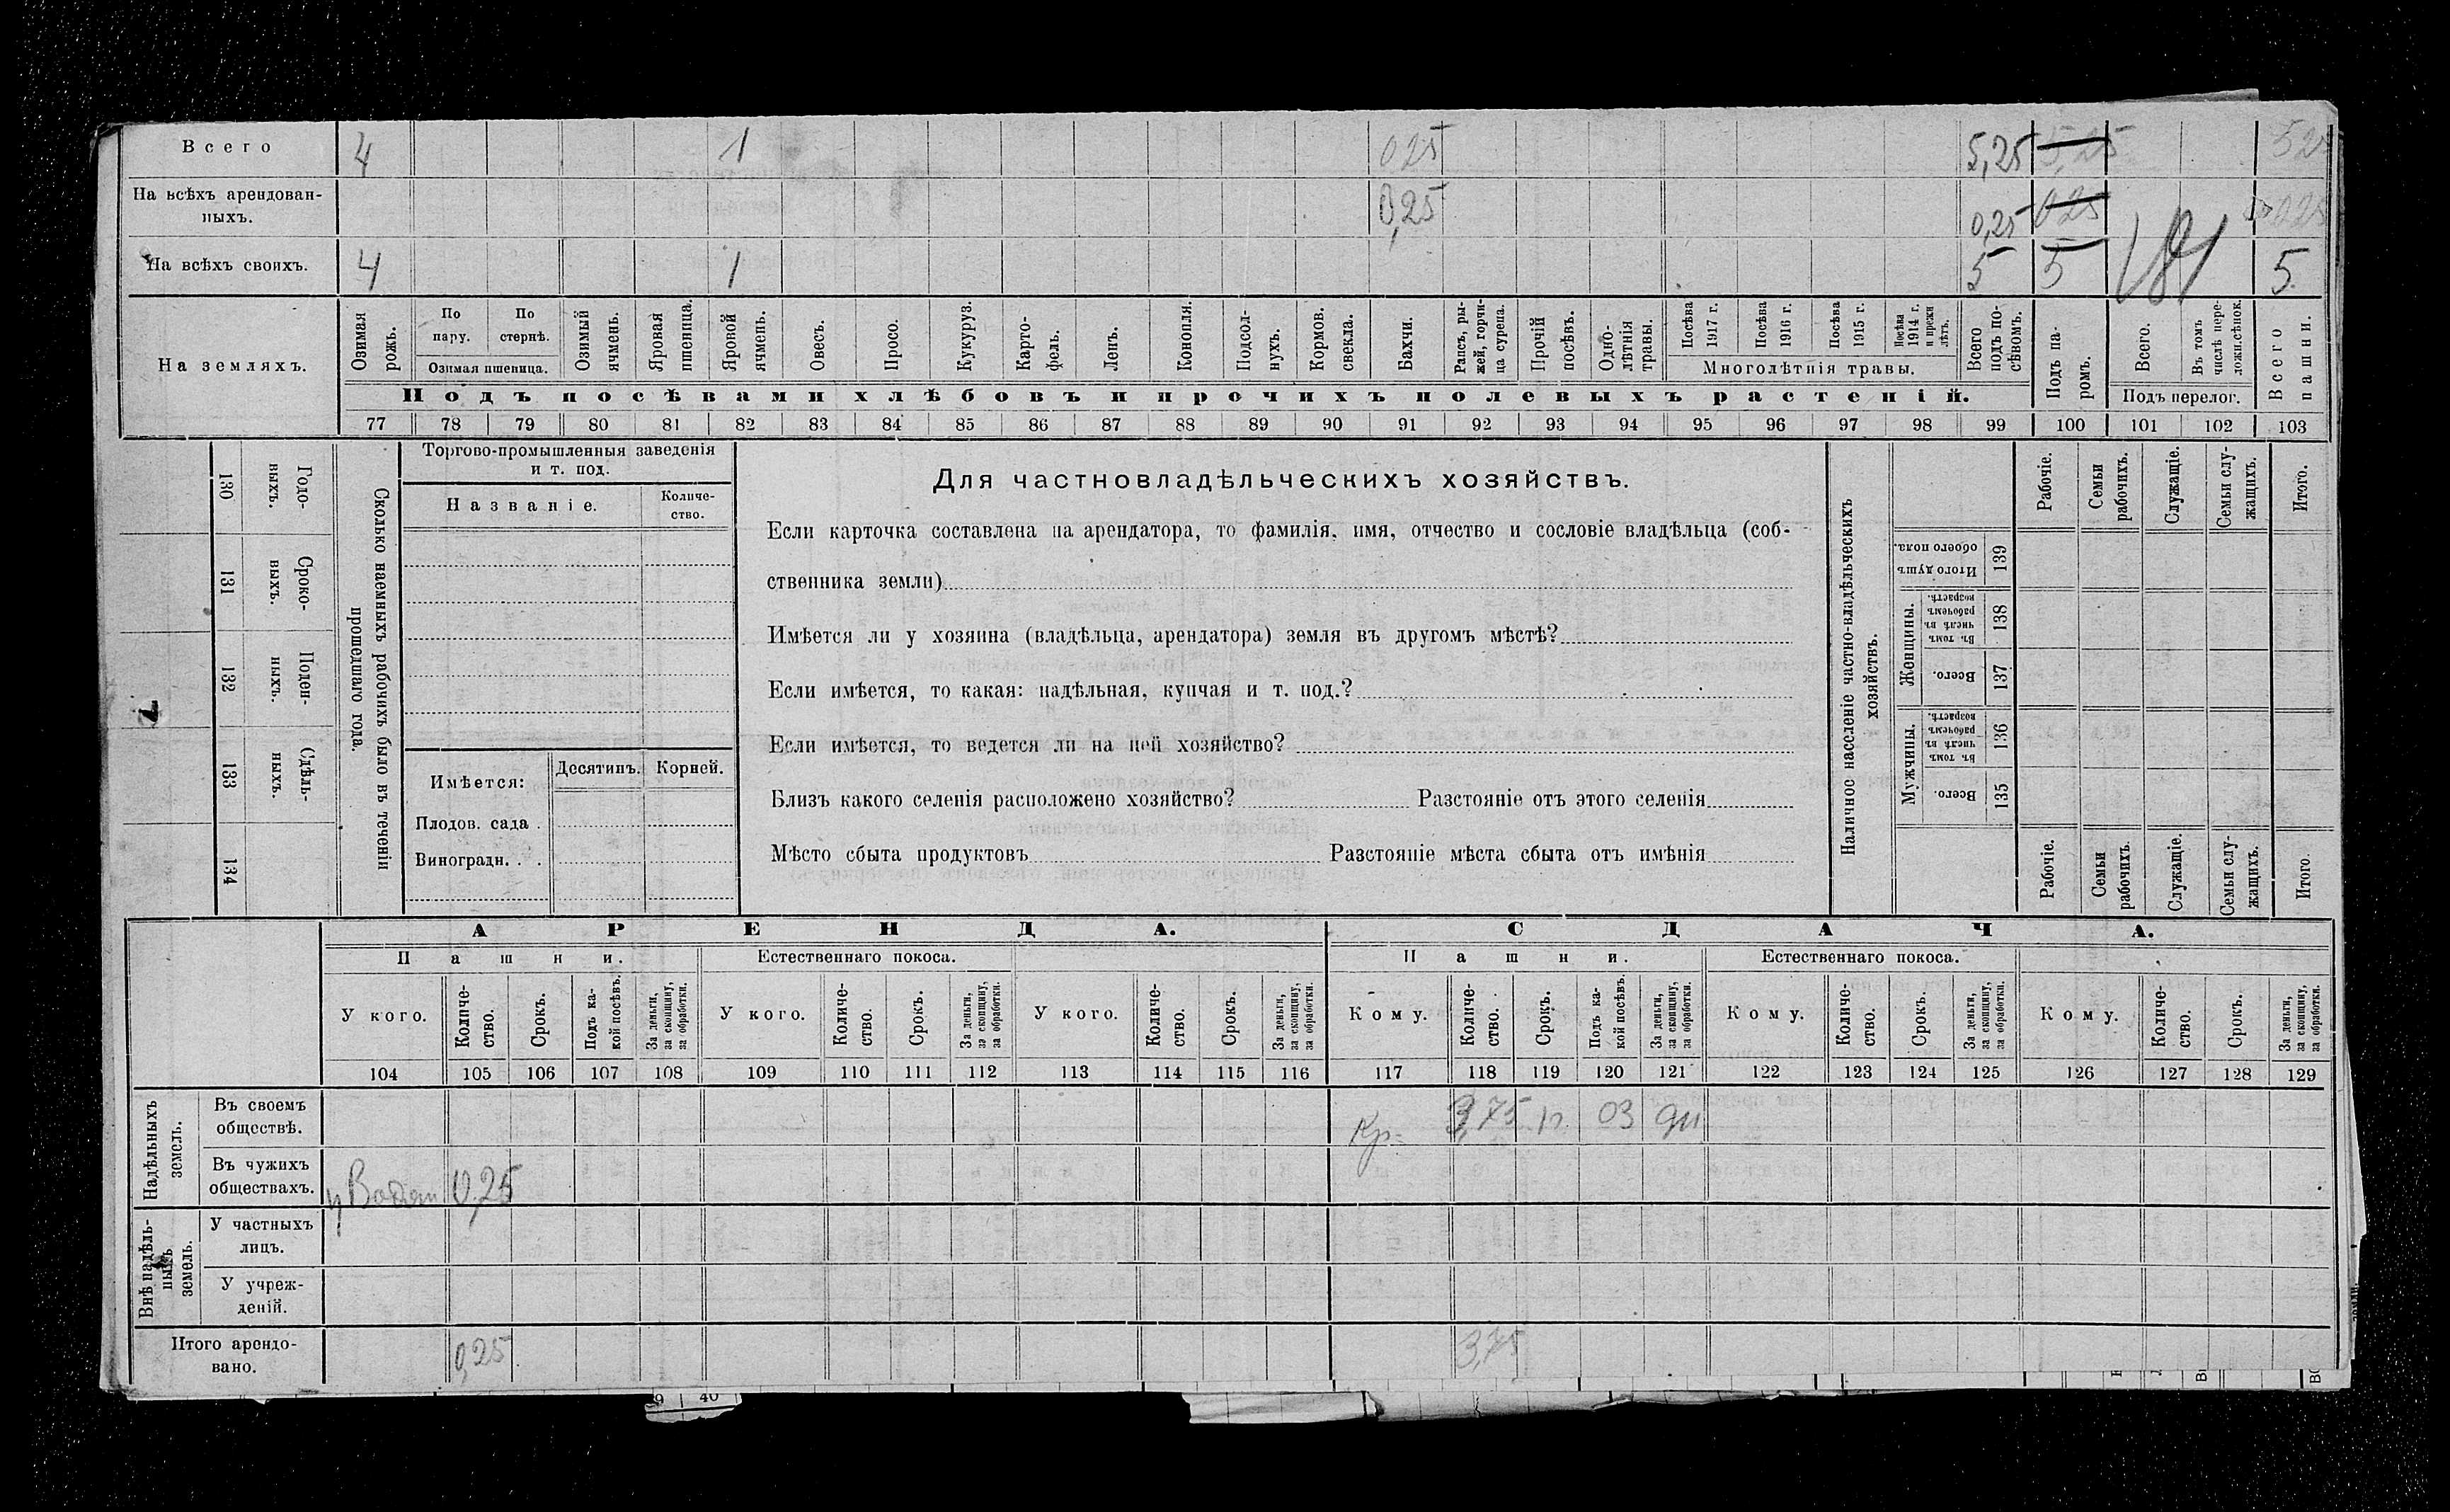 Всего 4 1 025 5,25 5,25 525
На всѣхъ арендован-
ныхъ. 0,25 0,25 025 025
На всѣхъ своихъ. 4 1 5 5 5
На земляхъ.
Озимая рожь.
По пару.
По стернѣ.
Озимая пшеница.
Озимый ячмень.
Яровая пшеница.
Яровой ячмень.
Овесъ.
Просо.
Кукуруз.
Карто-
фель.
Ленъ.
Конопля.
Подсол-
нухъ.
Кормов. свекла.
Бахчи.
Рапсъ, ры-
жей, горчи-
ца сурепа.
Прочій посѣвъ.
Одно-
лѣтнія травы.
Посѣва 1917 г.
Посѣва 1916 г.
Посѣва 1915 г.
Посѣва 1914 г. и прежн лѣтъ.
Многолѣтнія травы.
Всего подъ по-
сѣвомъ.
Подъ па-
ромъ.
Всего.
Въ томъ числѣ пере-
ложн.сѣнок.
Подъ перелог.
Всего пашни.
Подъ посѣвами хлѣбовъ и прочихъ полевыхъ растеній.
77 78 79 80 81 82 83 84 85 86 87 88 89 90 91 92 93 94 95 96 97 98 99 100 101 102 103
130 Годо-
выхъ.
131 Сроко-
выхъ.
132 Поден-
ныхъ.
133 Сдѣль-
ныхъ.
134
Сколько наемныхъ рабочихъ было въ теченіи
прошедшаго года.
Торгово-промышленныя заведенія
и т. под.
Названіе.
Количе-
ство.
Имѣется: Десятинъ. Корней.
Плодов. сада .
Виноградн. . .
Для частновладѣльческихъ хозяйствъ.
Если карточка составлена на арендатора, то фамилія, имя, отчество и сословіе владѣльца (соб-
ственника земли)
Имѣется ли у хозяина (владѣльца, арендатора) земля въ другомъ мѣстѣ?
Если имѣется, то какая: надѣльная, купчая и т. под.?
Если имѣется, то ведется ли на ней хозяйство?
Близъ какого селенія расположено хозяйство? Разстояніе отъ этого селенія
Мѣсто сбыта продуктовъ Разстояніе мѣста сбыта отъ имѣнія
Наличное населеніе частно-владѣльческихъ
хозяйствъ.
Рабочіе.
Семьи рабочихъ.
Служащіе.
Семьи слу-
жащихъ.
Итого.
Итого душъ обоего пола. 139
Женщины.
Въ томъ числѣ въ рабочемъ возрастѣ. 138
Всего. 137
Мужчины.
Въ томъ числѣ въ рабочемъ возрастѣ. 136
Всего. 135
Рабочіе.
Семьи рабочихъ.
Служащіе.
Семьи слу-
жащихъ.
Итого.
АРЕНДА. СДАЧА.
Пашни. Естественнаго покоса. Пашни. Естественнаго покоса.
У кого. Количе-
ство. Срокъ. Подъ ка-
кой посѣвъ. За деньги, за скопщину, за обработки.
У кого. Количе-
ство. Срокъ. За деньги, за скопщину, за обработки.
У кого. Количе-
ство. Срокъ. За деньги, за скопщину, за обработки.
Кому. Количе-
ство. Срокъ. Подъ ка-
кой посѣвъ. За деньги, за скопщину, за обработки.
Кому. Количе-
ство. Срокъ. За деньги, за скопщину, за обработки.
Кому. Количе-
ство. Срокъ. За деньги, за скопщину, за обработки.
104 105 106 107 108 109 110 111 112 113 114 115 116 117 118 119 120 121 122 123 124 125 126 127 128 129
Надѣльныхъ земель.
Въ своемъ
обществѣ. Кр. 3,75 1г. 03
Въ чужихъ
обществахъ. 0,25
Внѣ надѣль-
ныхъ земель.
У частныхъ
лицъ.
У учреж-
деній.
Итого арендо-
вано. 0,25 3,75
9 40